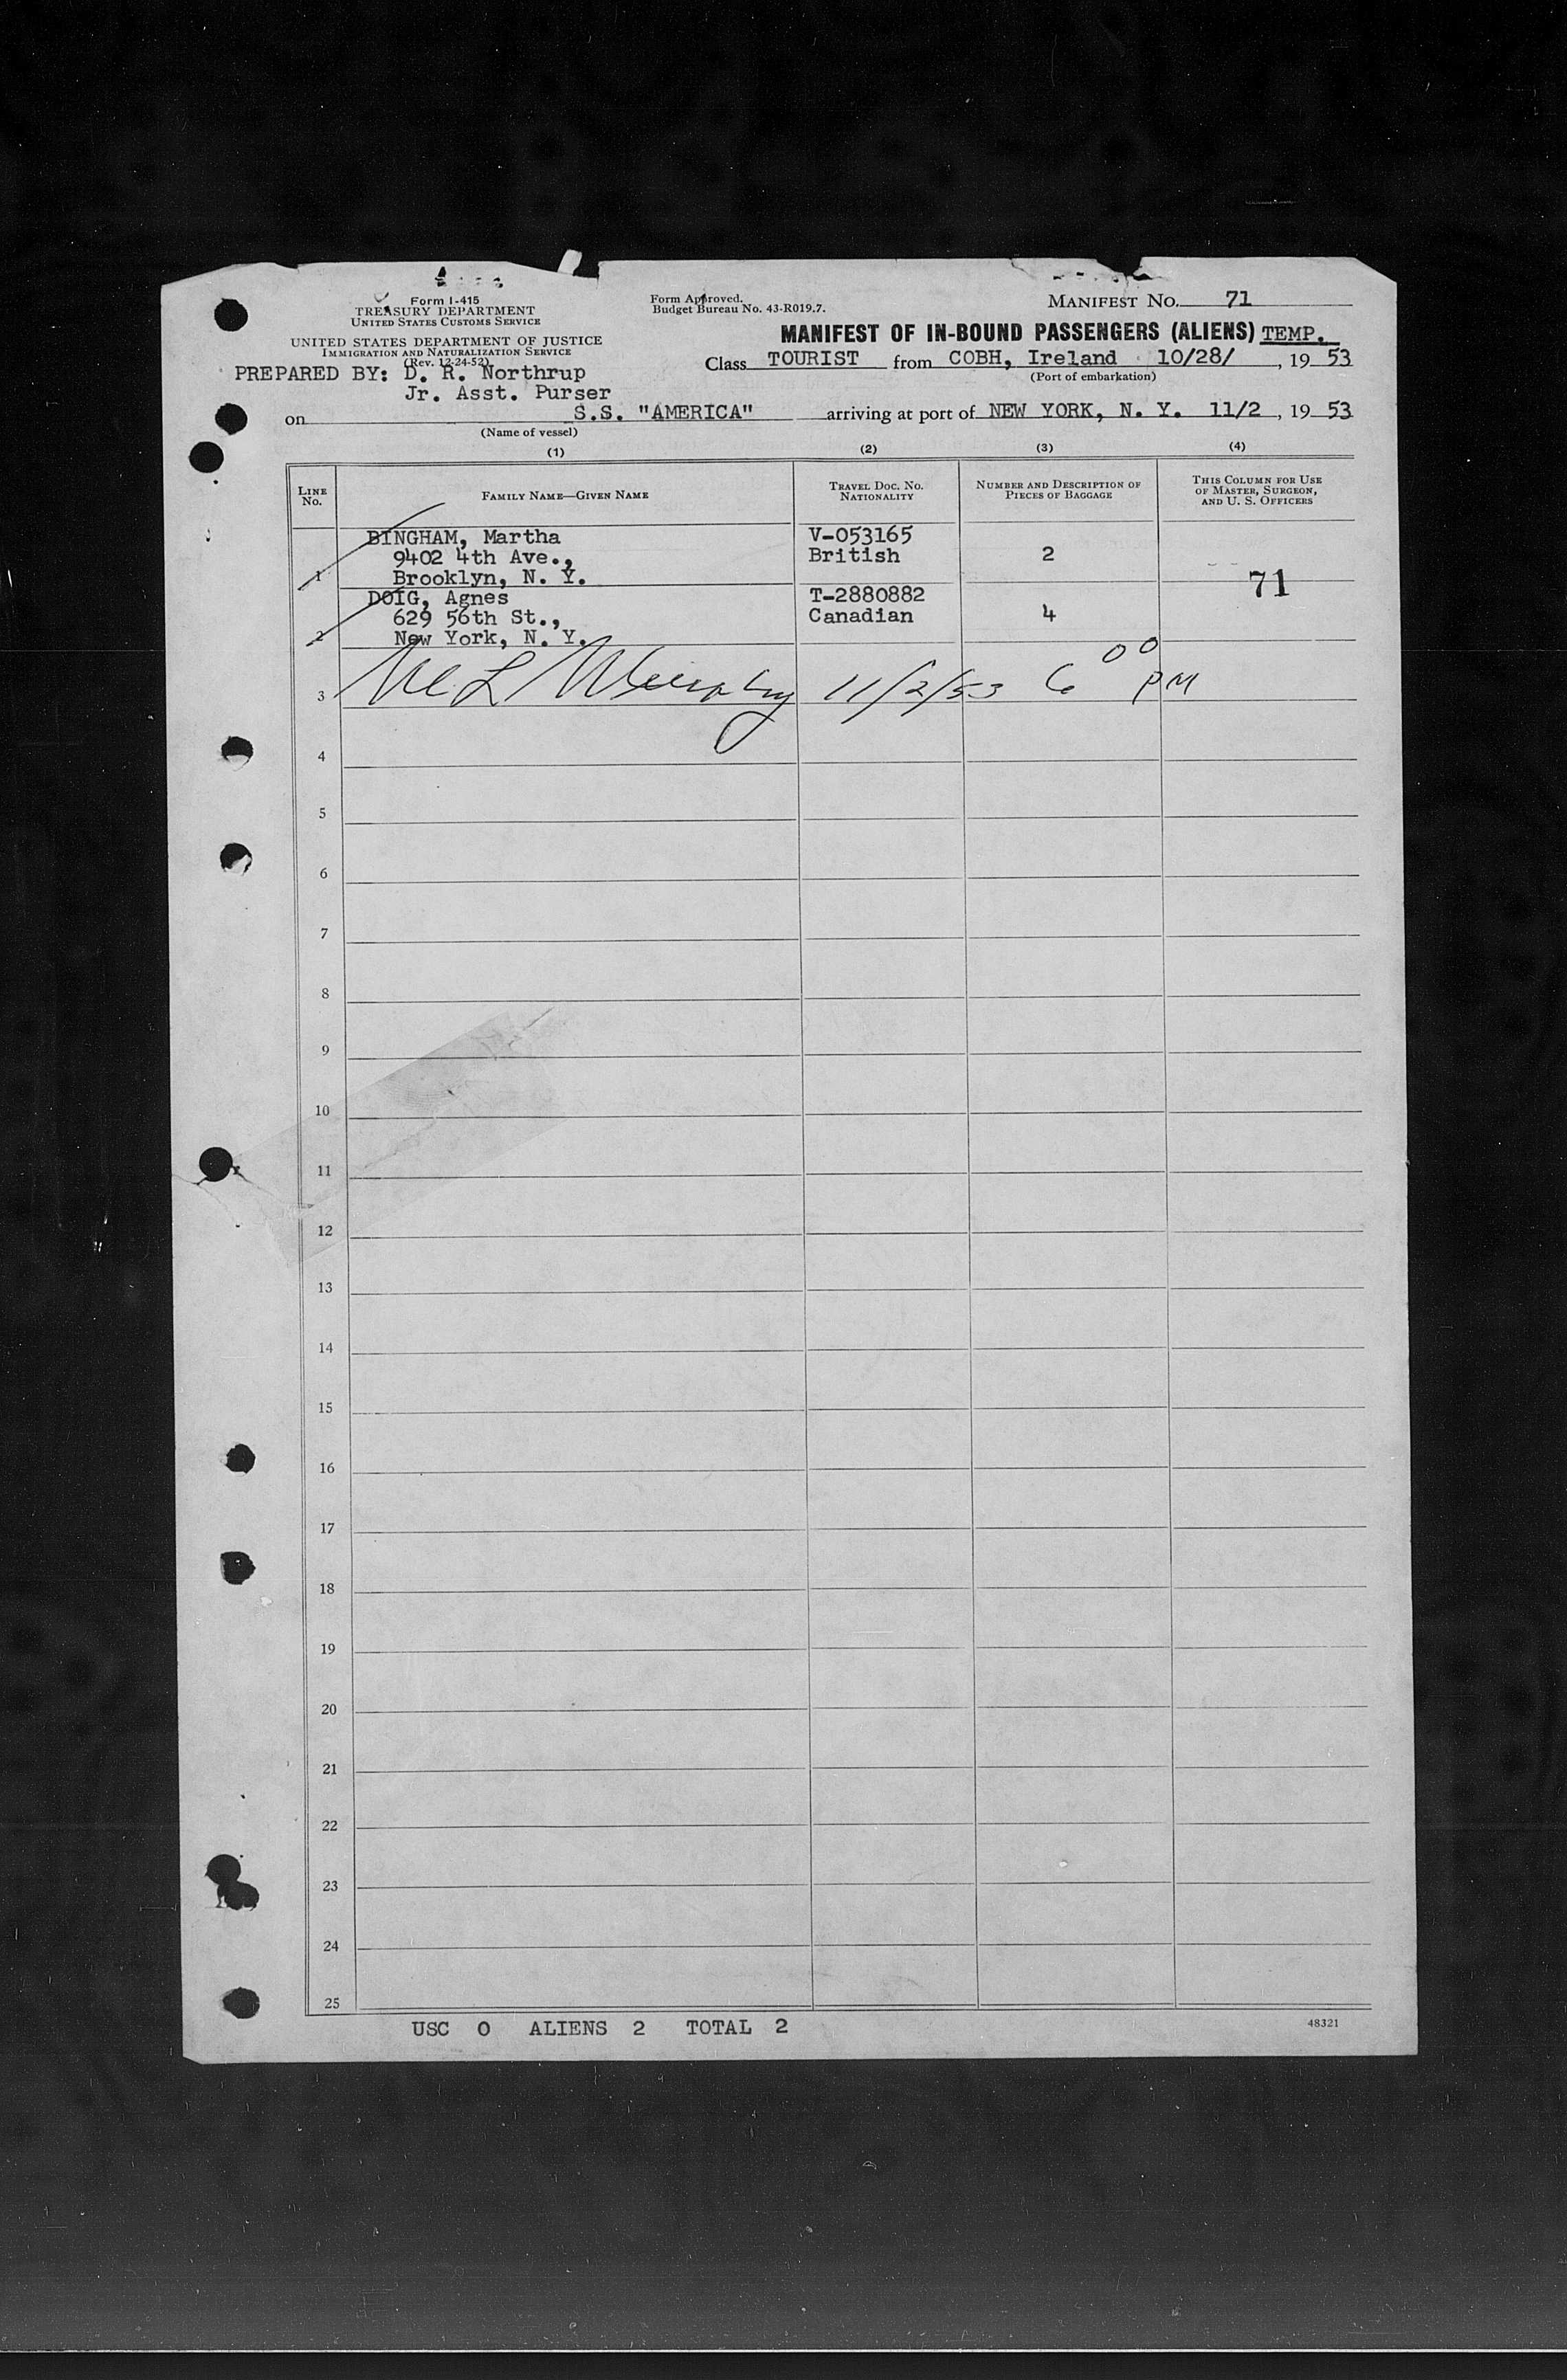 Form I-415
TREASURY DEPARTMENT
UNITED STATES CUSTOMS SERVICE
UNITED STATES DEPARTMENT OF JUSTICE
IMMIGRATION AND NATURALIZATION SERVICE
(Rev. 12-24-52)
PREPARED BY: D. R. Northrup
Jr. Asst. Purser
Form Approved.
Budget Bureau No. 43-R019.7.
MANIFEST No. 71
MANIFEST OF IN-BOUND PASSENGERS (ALIENS) TEMP.
Class TOURIST from COBH, Ireland 10/28/, 19 53
(Port of embarkation)
on S.S. "AMERICA" arriving at port of NEW YORK, N. Y. 11/2, 19 53
(Name of vessel)
(1) (2) (3) (4)
LINE No. FAMILY NAME—GIVEN NAME TRAVEL DOC. NO. NATIONALITY NUMBER AND DESCRIPTION OF PIECES OF BAGGAGE THIS COLUMN FOR USE OF MASTER, SURGEON, AND U. S. OFFICERS
BINGHAM, Martha V-053165
9402 4th Ave., British 2
1 Brooklyn, N. Y. 71
DOIG, Agnes T-2880882
629 56th St., Canadian 4
2 New York, N. Y.
3 M L Murphy 11/2/53 6 00 PM
4
5
6
7
8
9
10
11
12
13
14
15
16
17
18
19
20
21
22
23
24
25
USC 0 ALIENS 2 TOTAL 2
48321